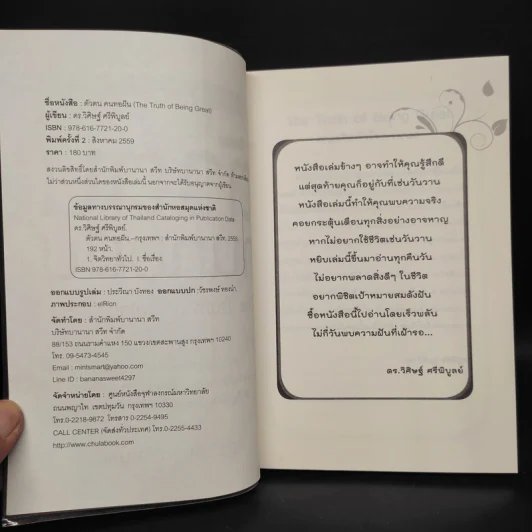 ชื่อหนังสือ : ตัวตน คนทอฝัน (The Truth of Being Great)
ผู้เขียน : ดร.วิศิษฐ์ ศรีพิบูลย์
ISBN : 978-616-7721-20-0
พิมพ์ครั้งที่ 2 : สิงหาคม 2559
ราคา : 180 บาท
สงวนลิขสิทธิ์โดยสำนักพิมพ์บานานา สวีท บริษัทบานานา สวีท จำกัด
ไม่ว่าส่วนหนึ่งส่วนใดของหนังสือเล่มนี้ นอกจากจะได้รับอนุญาตจากผู้เขียน
ข้อมูลทางบรรณานุกรมของสำนักหอสมุดแห่งชาติ
National Library of Thailand Cataloging in Publication Data
ดร.วิศิษฐ์ ศรีพิบูลย์.
ตัวตน คนทอฝัน.--กรุงเทพฯ : สำนักพิมพ์บานานา สวีท, 2559.
192 หน้า.
1. จิตวิทยาทั่วไป. I. ชื่อเรื่อง.
ISBN 978-616-7721-20-0
ออกแบบรูปเล่ม : ประวีณา บังทอง ออกแบบปก :
ภาพประกอบ : elRion
จัดทำโดย : สำนักพิมพ์บานานา สวีท
บริษัทบานานา สวีท จำกัด
88/153 ถนนรามคำแหง 150 แขวง/เขตสะพานสูง กรุงเทพฯ 10240
โทร. 09-5473-4545
Email : mintsmart@yahoo.com
Line ID : bananasweet4297
จัดจำหน่ายโดย : ศูนย์หนังสือจุฬาลงกรณ์มหาวิทยาลัย
ถนนพญาไท เขตปทุมวัน กรุงเทพฯ 10330
โทร.0-2218-9872 โทรสาร 0-2254-9495
CALL CENTER (จัดส่งทั่วประเทศ) โทร.0-2255-4433
http://www.chulabook.com
หนังสือเล่มข้างๆ อาจทำให้คุณรู้สึกดี
แต่สุดท้ายคุณก็อยู่กับที่เช่นวันวาน
หนังสือเล่มนี้ทำให้คุณพบความจริง
คอยกระตุ้นเตือนทุกสิ่งอย่างอาจหาญ
หากไม่อยากใช้ชีวิตเช่นวันวาน
หยิบเล่มนี้ขึ้นมาอ่านทุกคืนวัน
ไม่อยากพลาดสิ่งดีๆ ในชีวิต
อยากพิชิตเป้าหมายสมดังฝัน
ซื้อหนังสือนี้ไปอ่านโดยเร็วพลัน
ไม่กี่วันพบความฝันที่เฝ้ารอ...
ดร.วิศิษฐ์ ศรีพิบูลย์